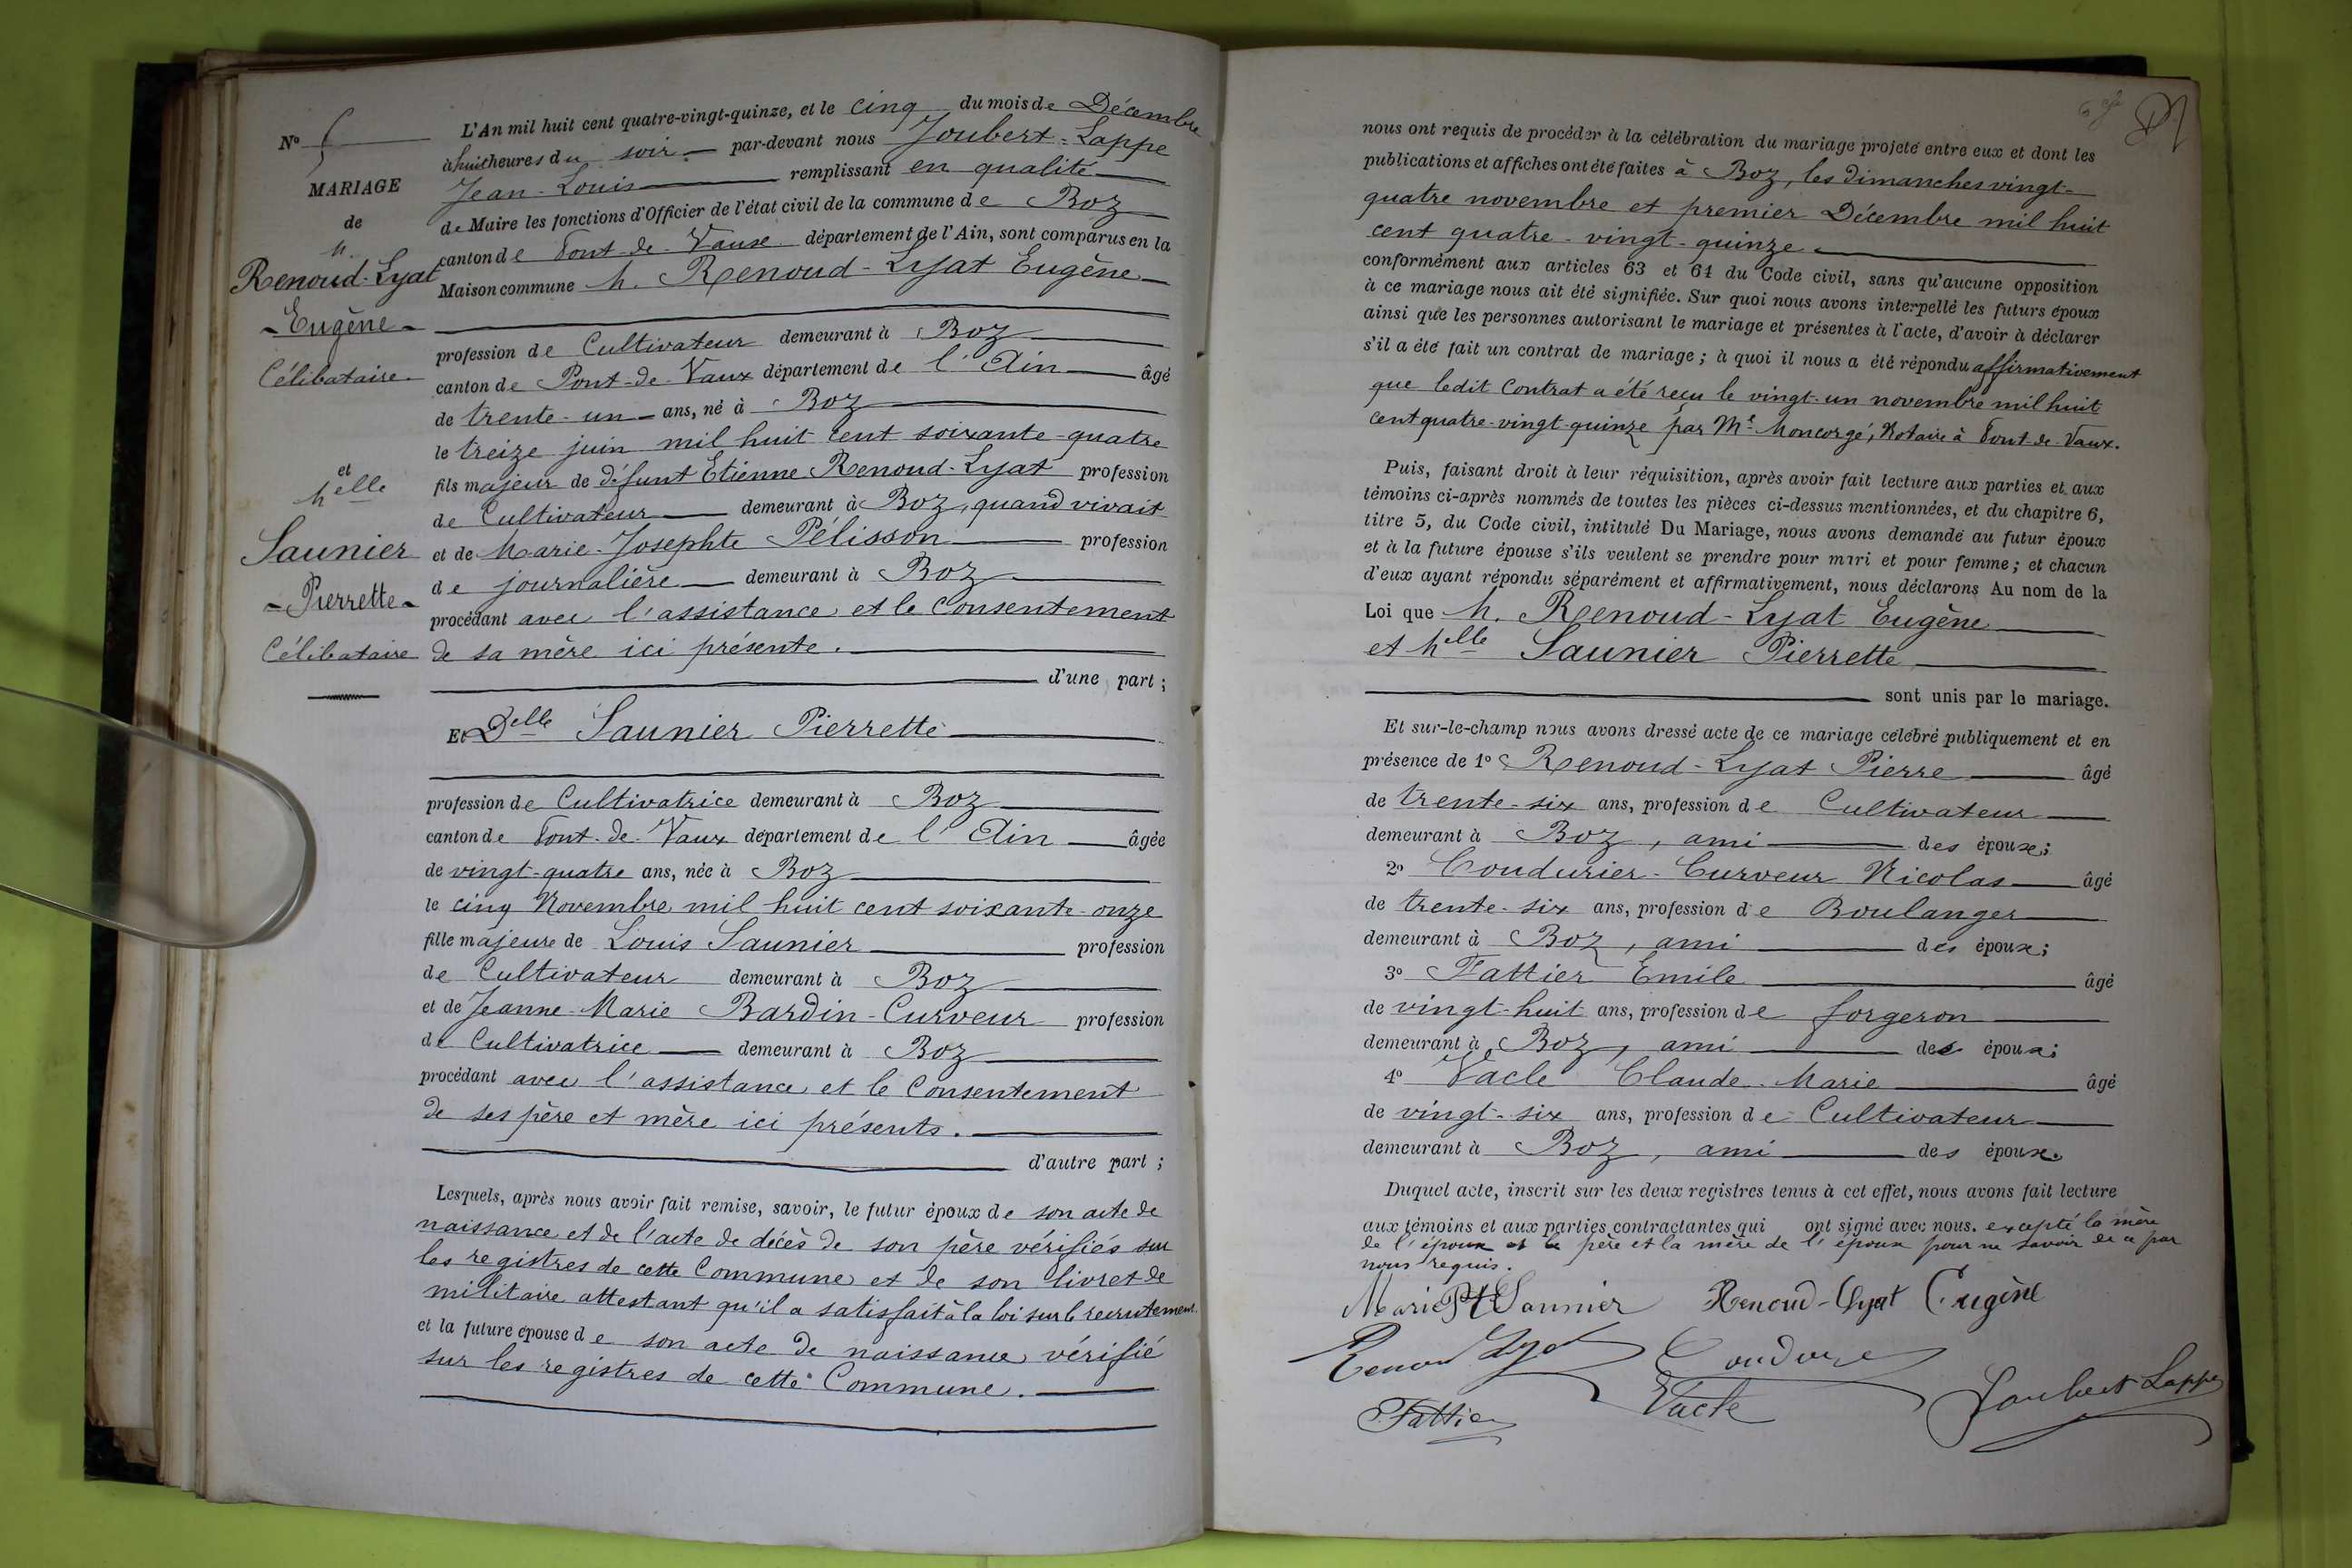 N°
MARIAGE
de
M.
Renoud-Lyat
- Eugène -
Célibataire
et
Melle
Saunier
- Pierrette -
Célibataire
L'An mil huit cent quatre-vingt-quinze, et le cinq du mois de Décembre
à huit heures du soir — par-devant nous Joubert-Lappe
Jean-Louis remplissant en qualité
de Maire les fonctions d'Officier de l'état civil de la commune de Boz
canton de Pont-de-Vaux département de l'Ain, sont comparus en la
Maison commune M. Renoud-Lyat Eugène
profession de Cultivateur demeurant à Boz
canton de Pont-de-Vaux département de l'Ain âgé
de trente-un ans, né à Boz
le treize juin mil huit cent soixante-quatre
fils majeur de défunt Etienne Renoud-Lyat profession
de Cultivateur demeurant à Boz, quand vivait
et de Marie-Josephte Pélisson profession
de journalière demeurant à Boz
procédant avec l'assistance et le Consentement
de sa mère ici présente.
d'une part ;
Et Delle Saunier Pierrette
profession de Cultivatrice demeurant à Boz
canton de Pont-de-Vaux département de l'Ain âgée
de vingt-quatre ans, née à Boz
le cinq Novembre mil huit cent soixante-onze
fille majeure de Louis Saunier profession
de Cultivateur demeurant à Boz
et de Jeanne-Marie Bardin-Curveur profession
de Cultivatrice demeurant à Boz
procédant avec l'assistance et le Consentement
de ses père et mère ici présents.
d'autre part ;
Lesquels, après nous avoir fait remise, savoir, le futur époux de son acte de
naissance et de l'acte de décès de son père vérifiés sur
les registres de cette Commune et de son livret de
militaire attestant qu'il a satisfait à la loi sur le recrutement
et la future épouse de son acte de naissance vérifié
sur les registres de cette Commune.
nous ont requis de procéder à la célébration du mariage projeté entre eux et dont les
publications et affiches ont été faites à Boz, les dimanches vingt-
quatre novembre et premier Décembre mil huit
cent quatre-vingt-quinze
conformément aux articles 63 et 64 du Code civil, sans qu'aucune opposition
à ce mariage nous ait été signifiée. Sur quoi nous avons interpellé les futurs époux
ainsi que les personnes autorisant le mariage et présentes à l'acte, d'avoir à déclarer
s'il a été fait un contrat de mariage ; à quoi il nous a été répondu affirmativement
que ledit Contrat a été reçu le vingt-un novembre mil huit
cent quatre-vingt-quinze par Me Moncorgé, Notaire à Pont-de-Vaux.
Puis, faisant droit à leur réquisition, après avoir fait lecture aux parties et aux
témoins ci-après nommés de toutes les pièces ci-dessus mentionnées, et du chapitre 6,
titre 5, du Code civil, intitulé Du Mariage, nous avons demandé au futur époux
et à la future épouse s'ils veulent se prendre pour mari et pour femme ; et chacun
d'eux ayant répondu séparément et affirmativement, nous déclarons Au nom de la
Loi que M. Renoud-Lyat Eugène
et Melle Saunier Pierrette
sont unis par le mariage.
Et sur-le-champ nous avons dressé acte de ce mariage célébré publiquement et en
présence de 1° Renoud-Lyat Pierre âgé
de trente-six ans, profession de Cultivateur
demeurant à Boz, ami des époux ;
2° Coudurier-Curveur Nicolas âgé
de trente-six ans, profession de Boulanger
demeurant à Boz, ami des époux ;
3° Fattier Emile âgé
de vingt-huit ans, profession de forgeron
demeurant à Boz, ami des époux ;
4° Vacle Claude-Marie âgé
de vingt-six ans, profession de Cultivateur
demeurant à Boz, ami des époux.
Duquel acte, inscrit sur les deux registres tenus à cet effet, nous avons fait lecture
aux témoins et aux parties contractantes qui ont signé avec nous. excepté la mère
de l'époux et le père et la mère de l'épouse pour ne savoir de ce par
nous requis.
Marie Pte Saunier Renoud-Lyat Eugène
Renoud Lyat Coudurier
Fattier Vacle Joubert Lappe